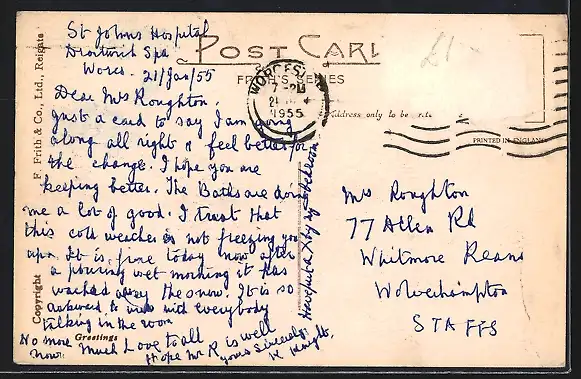 St Johns Hospital
Droitwich Spa
Worcs. 21/Jan/55
Dear Mrs Roughton.
Just a card to say I am going
along all right & feel better for
the change. I hope you are
keeping better. The Baths are doing
me a lot of good. I trust that
this cold weather is not freezing you
upn. It is fine today now after
a pouring wet morning it has
washed away the snow. It is so
awkward to write with everybody
talking in the room
No more now. Much Love to all
Hope Mr R is well
yours sincerely.
K Knight.
POST CARD
FRITH'S SERIES
WORCESTER
7 PM
1955
Address only to be
PRINTED IN ENGLAND
£1
Copyright F. Frith & Co., Ltd., Reigate
Greetings
Mrs Roughton
77 Allen Rd
Whitmore Reans
Wolverhampton
STAFFS